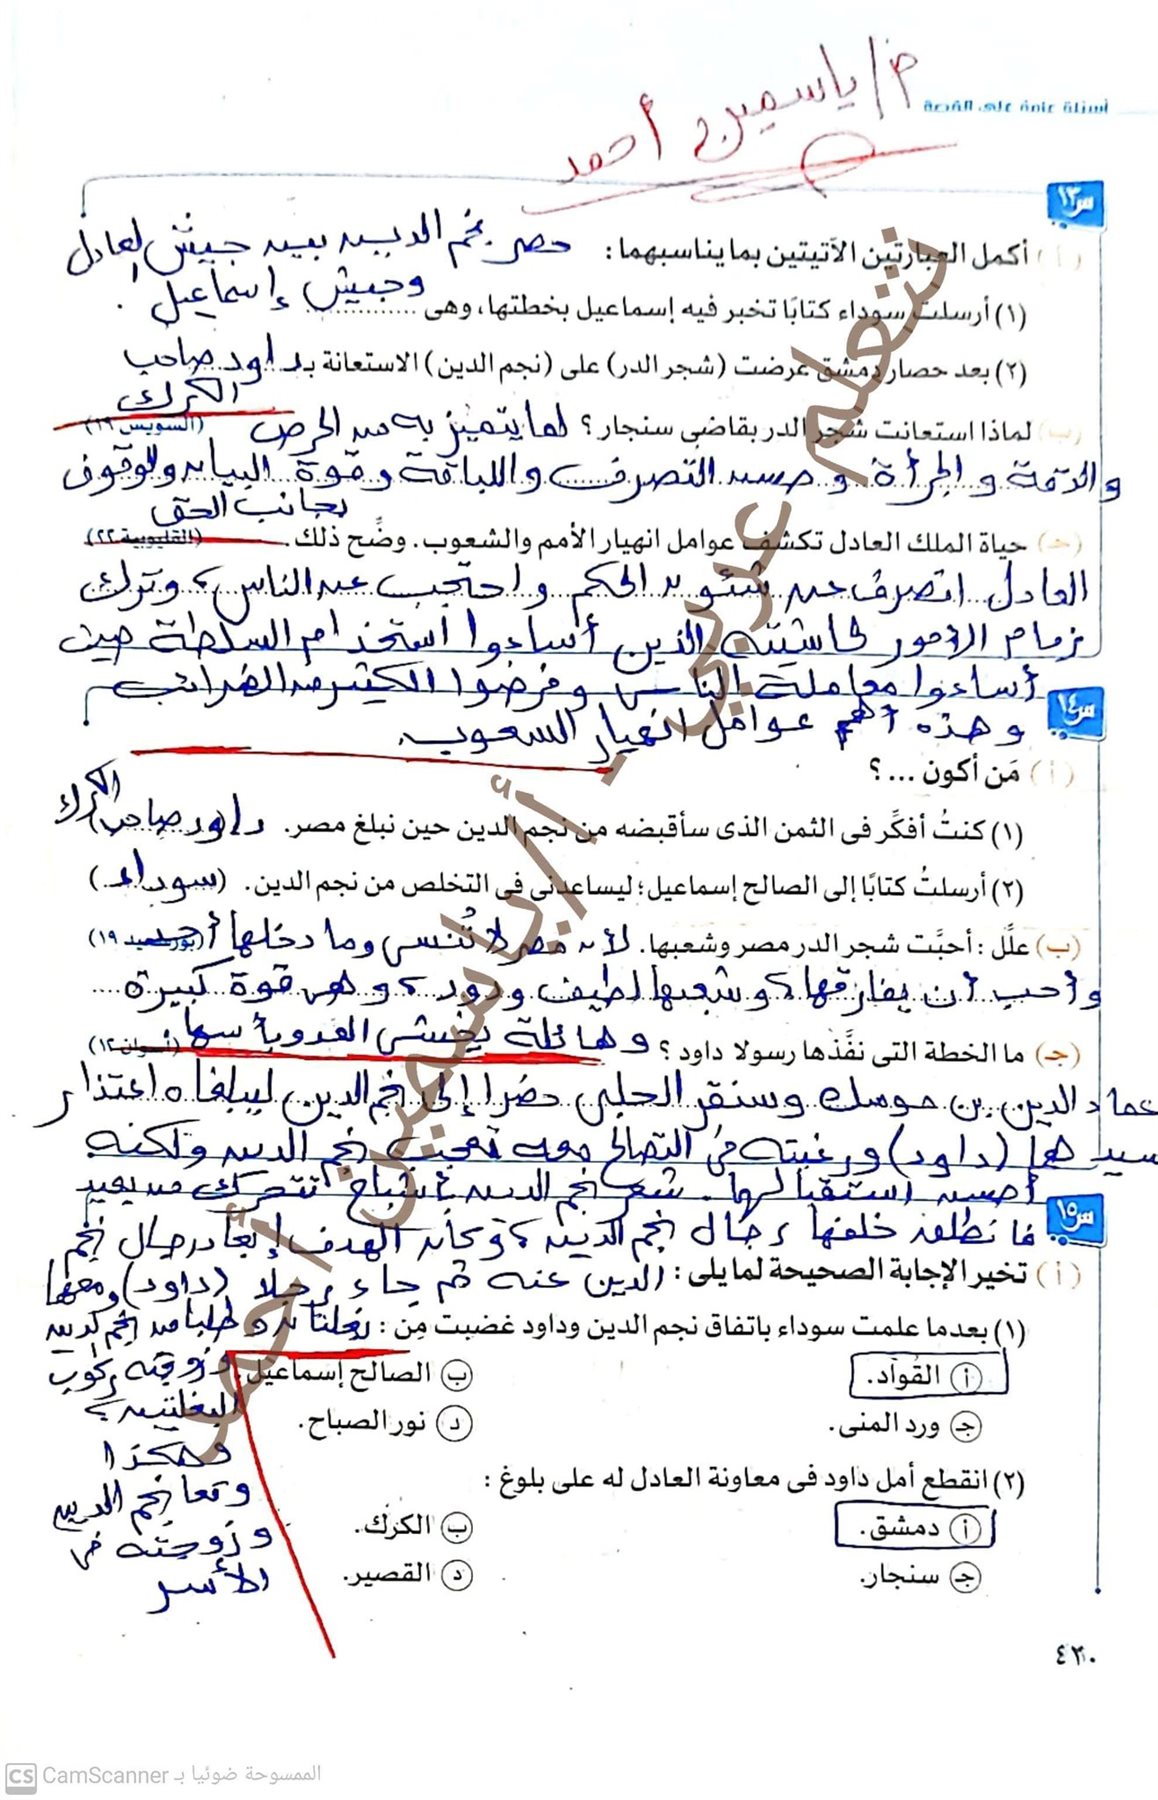 أسئلة عامة على القصة
م/ ياسمين أحمد
س١٣
(أ) أكمل العبارتين الآتيتين بما يناسبهما:
(١) أرسلت سوداء كتابًا تخبر فيه إسماعيل بخطتها، وهى ............
حصر نجم الدين بين جيش العادل
وجيش إسماعيل.
(٢) بعد حصار دمشق عرضت (شجر الدر) على (نجم الدين) الاستعانة بـ داود صاحب
الكرك
(ب) لماذا استعانت شجر الدر بقاضى سنجار؟ لما يتميز به من الحرص (السويس ١٩)
والدقة والجرأة وحسن التصرف واللباقة وقوة البيان والوقوف
بجانب الحق
(جـ) حياة الملك العادل تكشف عوامل انهيار الأمم والشعوب. وضِّح ذلك. (القليوبية ٢٢)
العادل انصرف عن شئون الحكم واحتجب عن الناس، وترك
زمام الأمور لحاشيته الذين أساءوا استخدام السلطة حيث
أساءوا معاملة الناس وفرضوا الكثير من الضرائب
وهذه أهم عوامل انهيار الشعوب.
س١٤
(أ) مَن أكون ... ؟
(١) كنتُ أفكِّر فى الثمن الذى سأقبضه من نجم الدين حين نبلغ مصر. (داود صاحب الكرك)
(٢) أرسلتُ كتابًا إلى الصالح إسماعيل؛ ليساعدنى فى التخلص من نجم الدين. (سوداء)
(ب) علِّل: أحبَّت شجر الدر مصر وشعبها. لأن مصر لا تُنسى وما دخلها أحد (بورسعيد ١٩)
وأحب أن يفارقها، وشعبها لطيف ودود، وهى قوة كبيرة
وهائلة يخشى العدو بأسها
(جـ) ما الخطة التى نفَّذها رسولا داود؟ (أسوان ١٢)
عماد الدين بن موسك وسنقر الحلبى حضرا إلى نجم الدين ليبلغاه اعتذار
سيدهما (داود) ورغبته فى التصالح معه تعجب نجم الدين ولكنه
أحسن استقبالهما. شعر نجم الدين بأشباح تتحرك من بعيد
فانطلق خلفها رجال نجم الدين، وكان الهدف إبعاد رجال نجم
الدين عنه ثم جاء رجلا (داود) ومعهما
بغلتان وطلبا من نجم الدين
وزوجته ركوب
البغلتين،
وهكذا
وقعا نجم الدين
وزوجته فى
الأسر
س١٥
(أ) تخير الإجابة الصحيحة لما يلى:
(١) بعدما علمت سوداء باتفاق نجم الدين وداود غضبت مِن:
أ القُواد.
ب الصالح إسماعيل.
جـ ورد المنى.
د نور الصباح.
(٢) انقطع أمل داود فى معاونة العادل له على بلوغ:
أ دمشق.
ب الكرك.
جـ سنجار.
د القصير.
٤٢٠
نتعلم عربي - أ/ ياسمين أحمد
CS CamScanner الممسوحة ضوئيا بـ